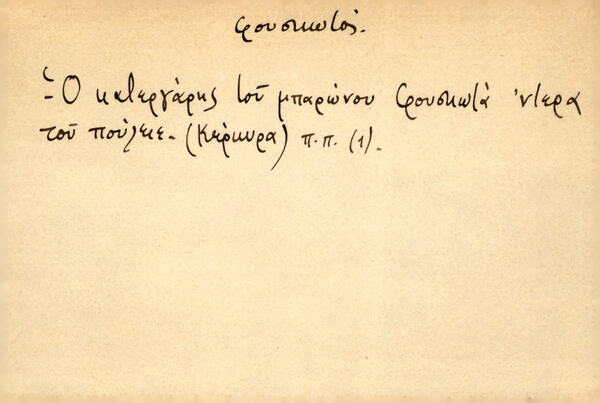 φρουσκωτός.
- Ὁ κατεργάρης τοῦ μπαρώνου φρουσκωτὰ 'ντερα
τοῦ πούλειε. (Κέρκυρα) π.π. (1).